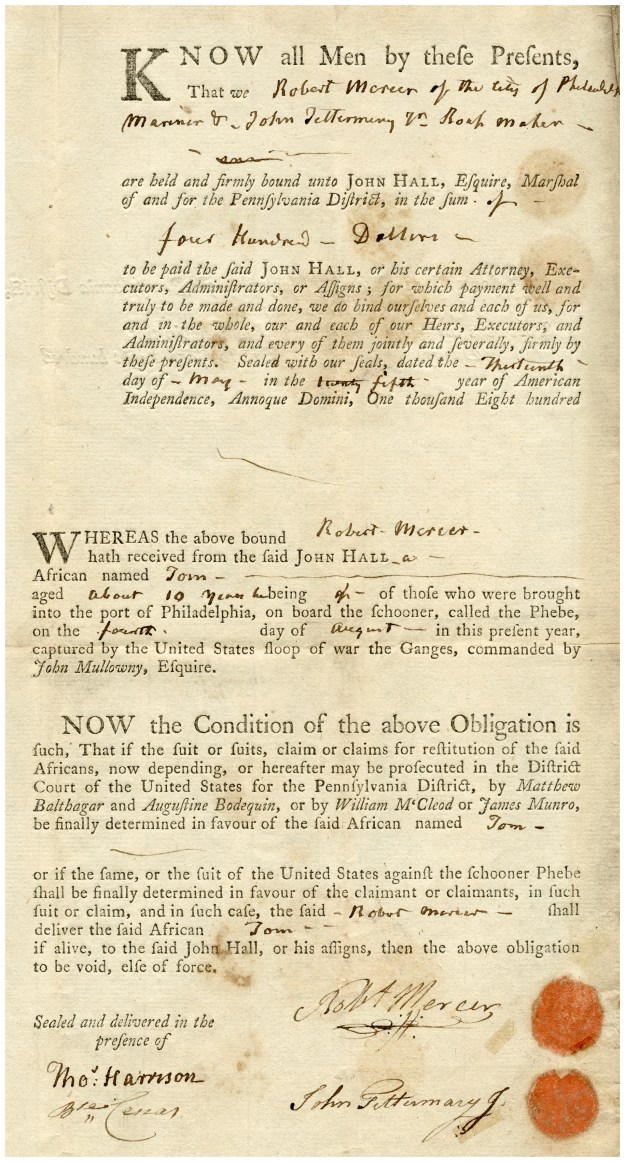 KNOW all Men by theſe Preſents,
That we Robert Mercer of the City of Philadelph
Mariner & John Fettermery Jn Roap maker
are held and firmly bound unto JOHN HALL, Eſquire, Marſhal
of and for the Pennſylvania Diſtrict, in the ſum of
four Hundred Dollars
to be paid the ſaid JOHN HALL, or his certain Attorney, Exe-
cutors, Adminiſtrators, or Aſſigns; for which payment well and
truly to be made and done, we do bind ourſelves and each of us, for
and in the whole, our and each of our Heirs, Executors, and
Adminiſtrators, and every of them jointly and ſeverally, firmly by
theſe preſents. Sealed with our ſeals, dated the Thirteenth
day of May in the twenty fifth year of American
Independence, Annoque Domini, One thouſand Eight hundred
WHEREAS the above bound Robert Mercer
hath received from the ſaid JOHN HALL a
African named Tom
aged about 10 Years being of thoſe who were brought
into the port of Philadelphia, on board the ſchooner, called the Phebe,
on the fourth day of August in this preſent year,
captured by the United States ſloop of war the Ganges, commanded by
John Mullowny, Eſquire.
NOW the Condition of the above Obligation is
ſuch, That if the ſuit or ſuits, claim or claims for reſtitution of the ſaid
Africans, now depending, or hereafter may be proſecuted in the Diſtrict
Court of the United States for the Pennſylvania Diſtrict, by Matthew
Balthagar and Auguſtine Bodequin, or by William McCleod or James Munro,
be finally determined in favour of the ſaid African named Tom
or if the ſame, or the ſuit of the United States againſt the ſchooner Phebe
ſhall be finally determined in favour of the claimant or claimants, in ſuch
ſuit or claim, and in ſuch caſe, the ſaid Robert Mercer ſhall
deliver the ſaid African Tom
if alive, to the ſaid John Hall, or his aſſigns, then the above obligation
to be void, elſe of force.
Robt Mercer
Sealed and delivered in the
preſence of
Thos. Harrison
John Fettermary Jr.